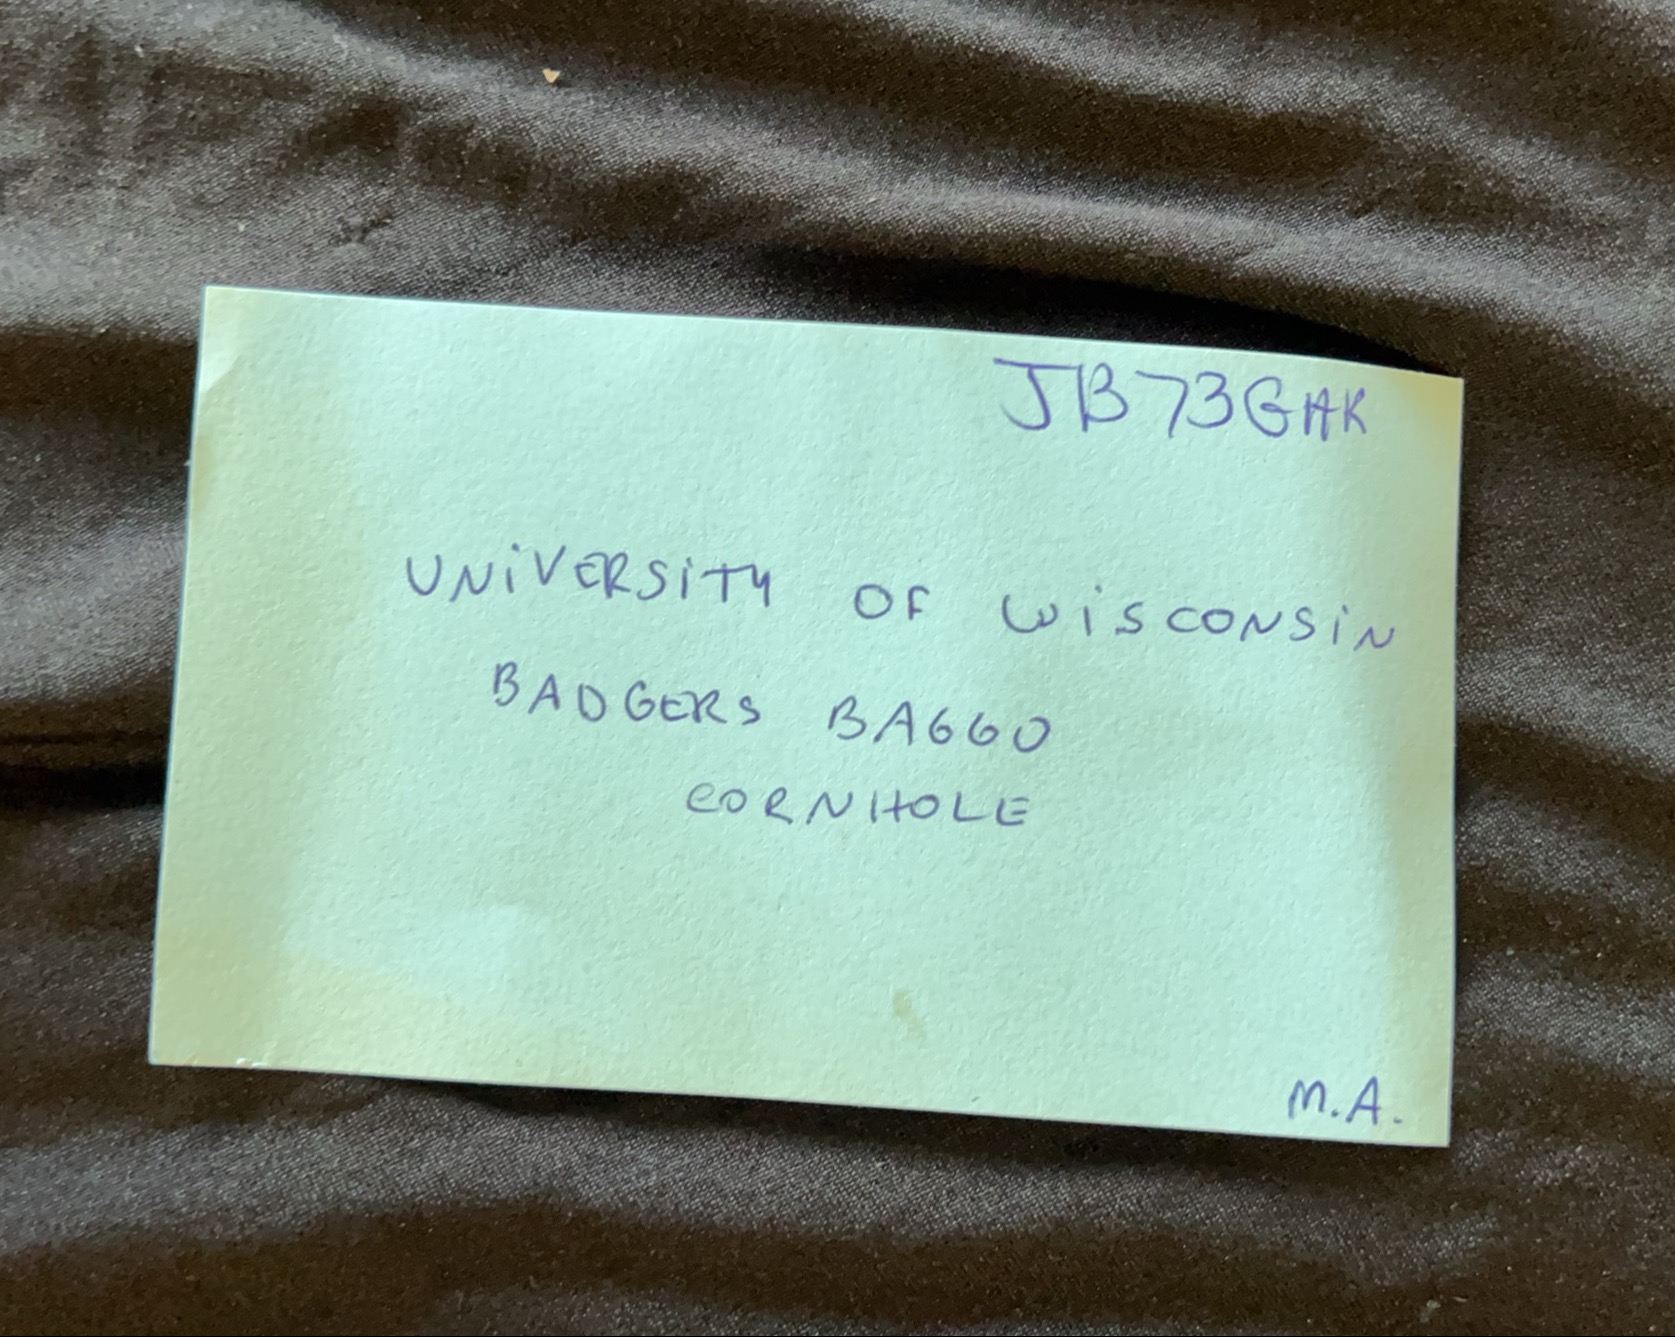 JB73GHK
UNiVERSiTY OF WiSCONSiN
BADGERS BAGGO
CORNHOLE
M.A.